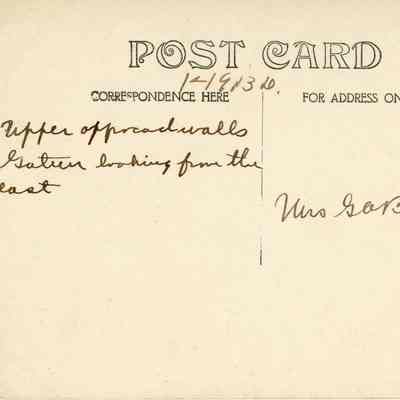 POST CARD
1-1913 D.
CORRESPONDENCE HERE
FOR ADDRESS ON
Upper approad walls
Gatun looking from the
east
Mrs G O B